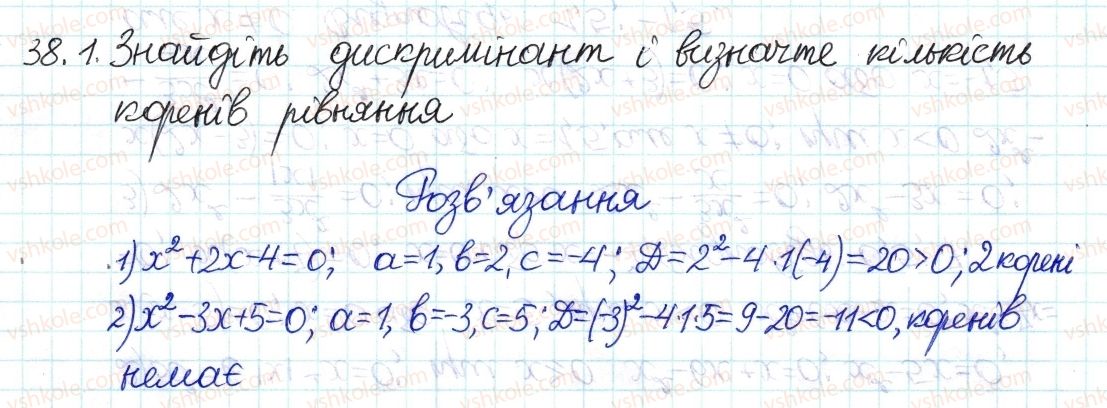 38.1. Знайдіть дискримінант і визначте кількість
коренів рівняння
Розв'язання
1) x²+2x-4=0; a=1, b=2, c=-4; D=2²-4·1(-4)=20>0; 2 корені
2) x²-3x+5=0; a=1, b=-3, c=5; D=(-3)²-4·1·5=9-20=-11<0, коренів
немає